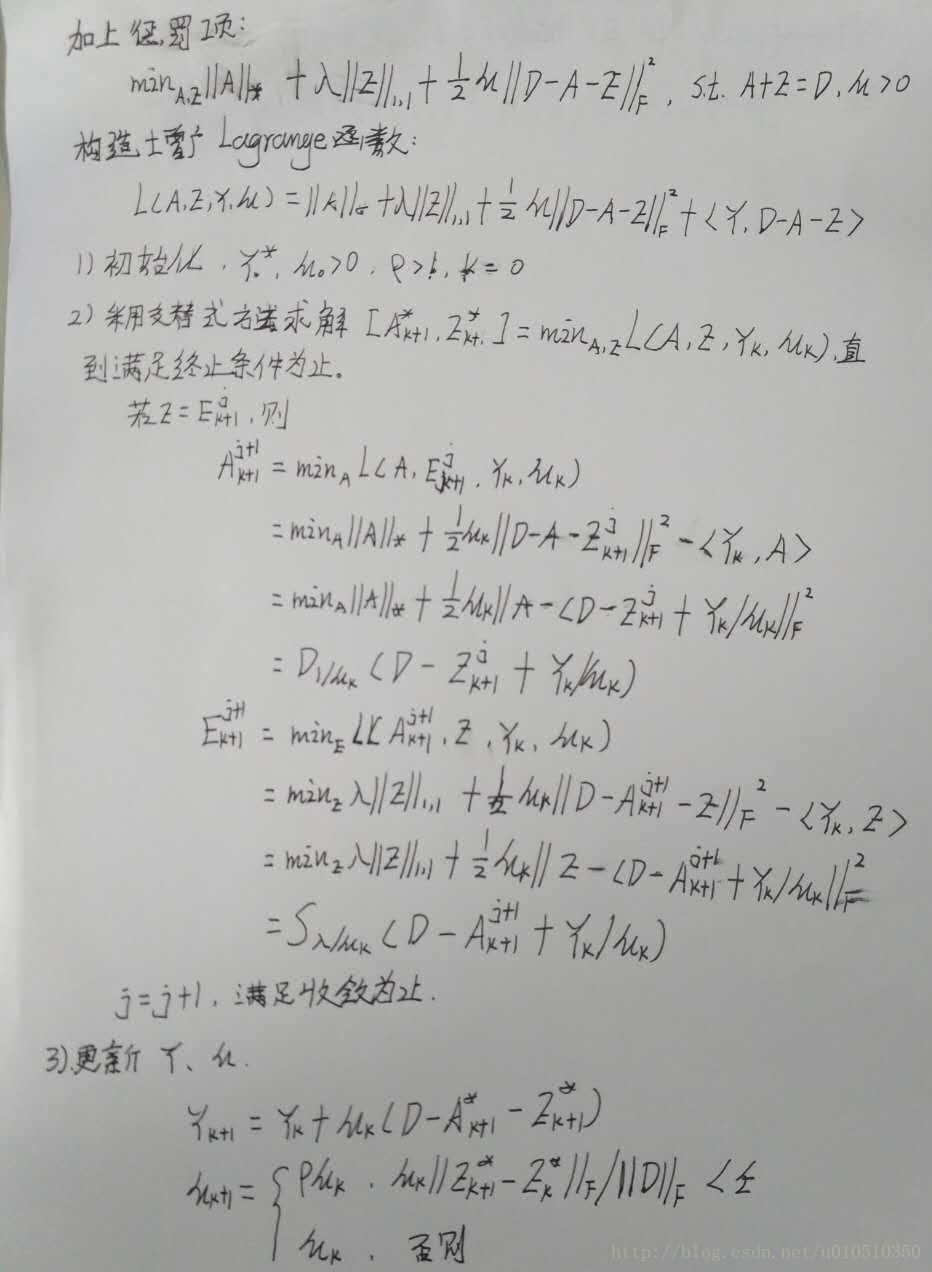 加上惩罚项:
min_{A,Z}||A||_* + λ||Z||_{1,1} + 1/2 μ||D-A-Z||_F^2, s.t. A+Z=D, μ>0
构造增广Lagrange函数:
L(A,Z,Y,μ) = ||A||_* + λ||Z||_{1,1} + 1/2 μ||D-A-Z||_F^2 + <Y, D-A-Z>
1) 初始化, Y_0^*, μ_0>0, ρ>1, k=0
2) 采用交替式方法求解 [A_{k+1}^*, Z_{k+1}^*] = min_{A,Z}L(A, Z, Y_k, μ_k), 直
到满足终止条件为止。
若Z=E_{k+1}^j, 则
A_{k+1}^{j+1} = min_A L(A, E_{k+1}^j, Y_k, μ_k)
= min_A||A||_* + 1/2 μ_k||D-A-Z_{k+1}^j||_F^2 - <Y_k, A>
= min_A||A||_* + 1/2 μ_k||A-(D-Z_{k+1}^j + Y_k/μ_k||_F^2
= D_{1/μ_k}(D-Z_{k+1}^j + Y_k/μ_k)
E_{k+1}^{j+1} = min_E L(A_{k+1}^{j+1}, Z, Y_k, μ_k)
= min_Z λ||Z||_{1,1} + 1/2 μ_k||D-A_{k+1}^{j+1}-Z||_F^2 - <Y_k, Z>
= min_Z λ||Z||_{1,1} + 1/2 μ_k||Z-(D-A_{k+1}^{j+1} + Y_k/μ_k||_F^2
= S_{λ/μ_k}(D-A_{k+1}^{j+1} + Y_k/μ_k)
j=j+1, 满足收敛为止.
3) 更新 Y、μ.
Y_{k+1} = Y_k + μ_k(D-A_{k+1}^*-Z_{k+1}^*)
μ_{k+1} = { ρμ_k, μ_k||Z_{k+1}^*-Z_k^*||_F/||D||_F < ε
μ_k, 否则
http://blog.csdn.net/u010510350